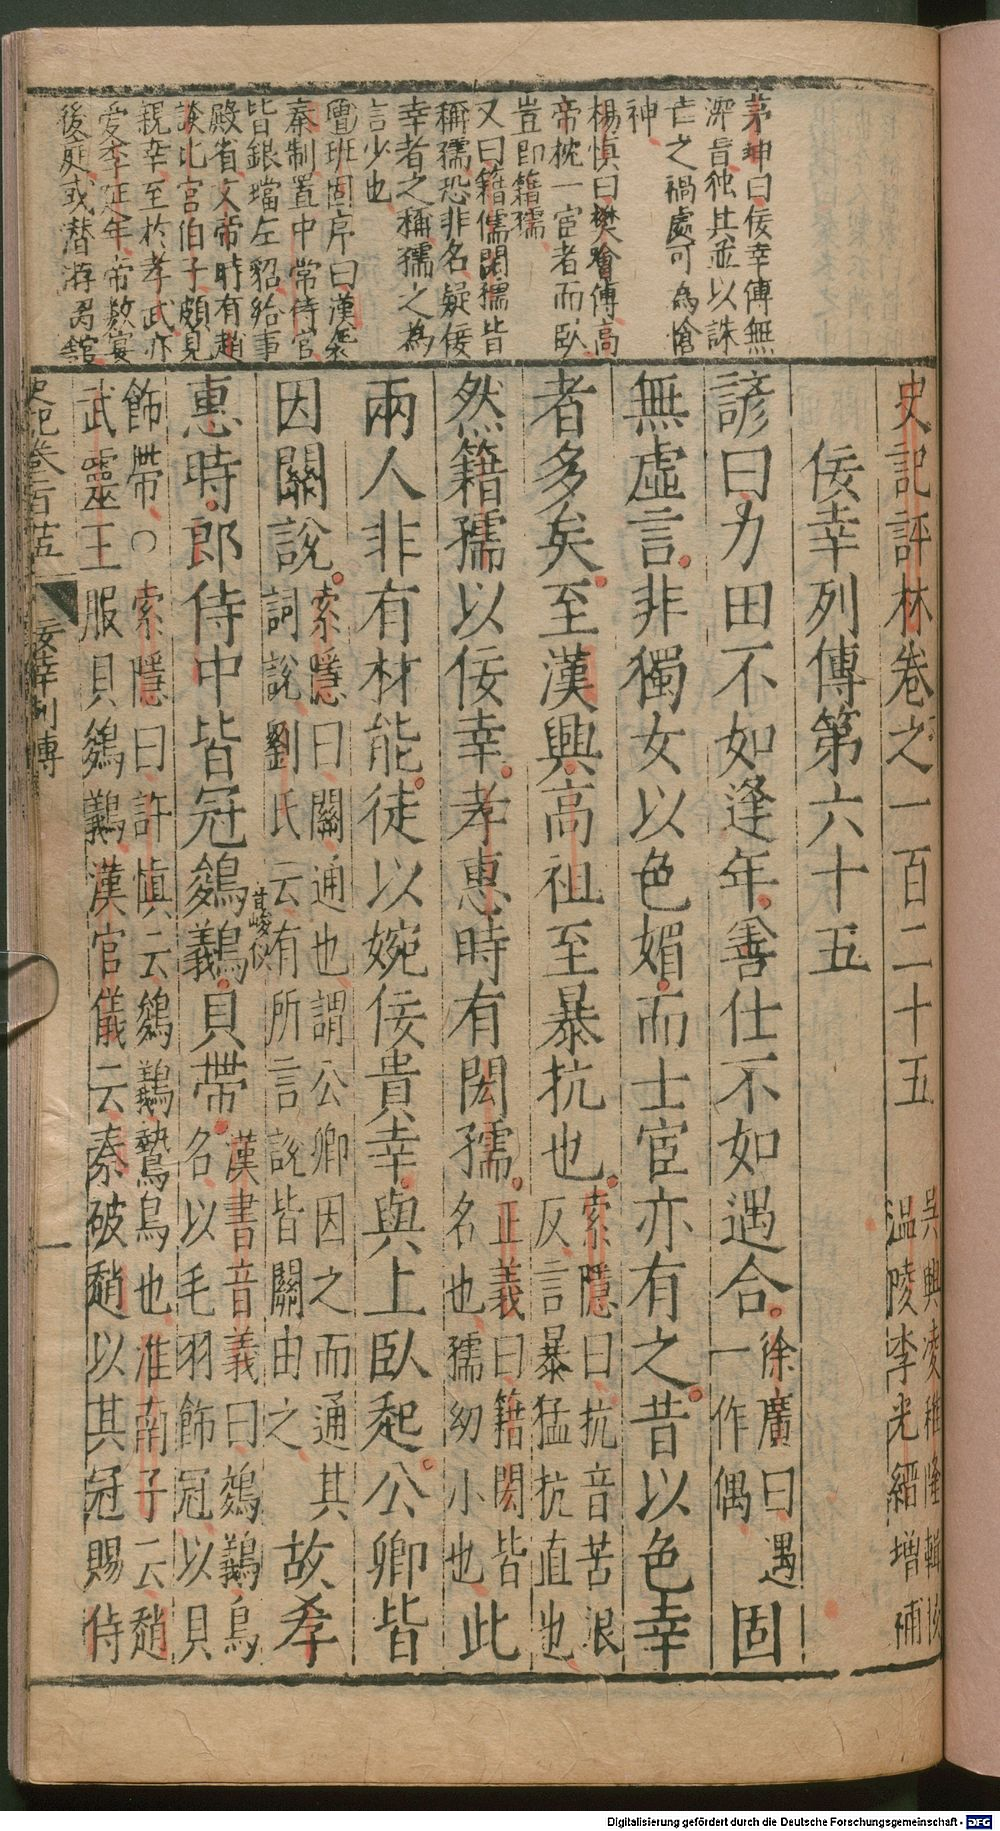 史記評林卷之一百二十五
吳興凌稚隆輯校
溫陵李光縉增補
佞幸列傳第六十五
諺曰力田不如逢年善仕不如遇合徐廣曰遇一作偶固
無虛言非獨女以色媚而士宦亦有之昔以色幸
者多矣至漢興高祖至暴抗也索隱曰抗音苦浪反言暴猛抗直也
然籍孺以佞幸孝惠時有閎孺正義曰籍閎皆名也孺幼小也此
兩人非有材能徒以婉佞貴幸與上臥起公卿皆
因關說索隱曰關通也謂公卿因之而通其詞說劉氏云有所言說皆關由之故孝
惠時郎侍中皆冠鵔鸃貝帶漢書音義曰鵔鸃鳥名以毛羽飾冠以貝
音峻儀
飾帶○索隱曰許慎云鵔鸃鷙鳥也淮南子云趙
武靈王服貝鵔鸃漢官儀云秦破趙以其冠賜侍
史記卷百廿五
佞幸列傳
一
茅坤曰佞幸傳無
深旨独其並以誅
亡之禍處可為愴
神
楊慎曰樊噲傳高
帝枕一宦者而臥
豈即籍孺
又曰籍儒閎孺皆
稱孺恐非名疑佞
幸者之稱孺之為
言少也
班固序曰漢襲
秦制置中常侍官
皆銀璫左貂給事
殿省文帝時有趙
談北宮伯子頗見
親幸至於孝武亦
愛李延年帝數宴
後庭或潛游离舘
Digitalisierung gefördert durch die Deutsche Forschungsgemeinschaft - DFG